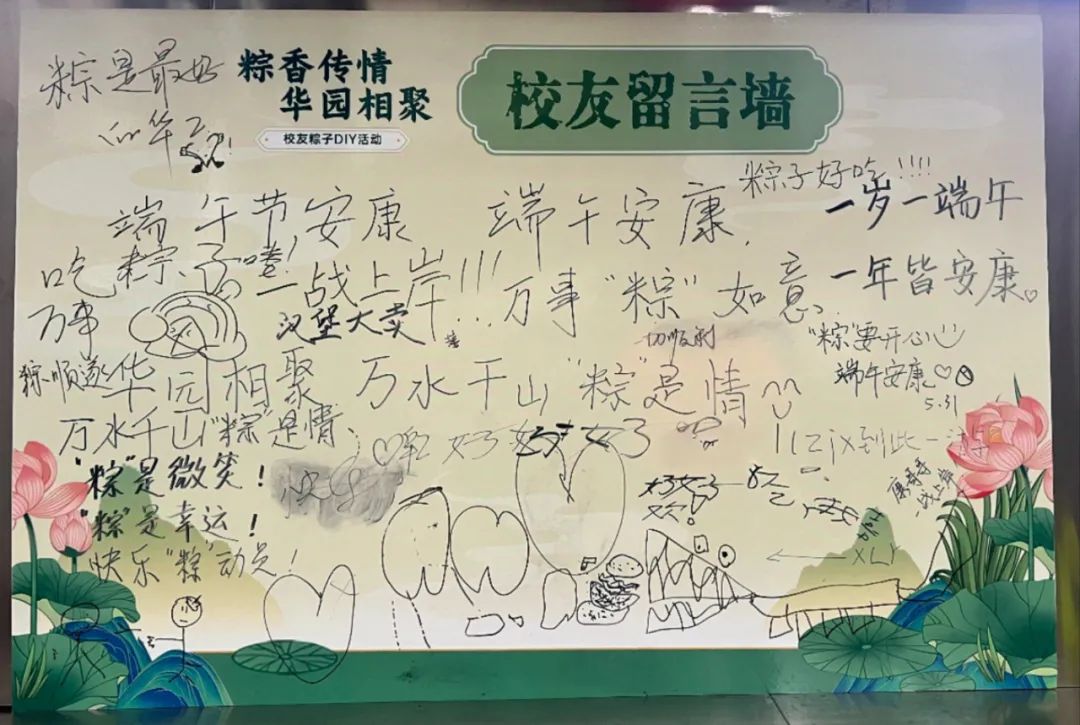 粽是最好
粽香传情
华园相聚
校友粽子DIY活动
校友留言墙
粽子好吃!!!!
端午节安康
端午安康.
一岁一端午
吃粽子喽!
一战上岸!!!
万事“粽”如意.
一年皆安康♡
万事
粽顺遂
汉堡大卖
切顺利
“粽”要开心
端午安康♡
5.31
华园相聚
万水千山“粽”是情
万水千山“粽”是情、
好了好了好了
到此一游
“粽”是微笑!
“粽”是幸运!
快乐“粽”动员!
一战上岸
XLY